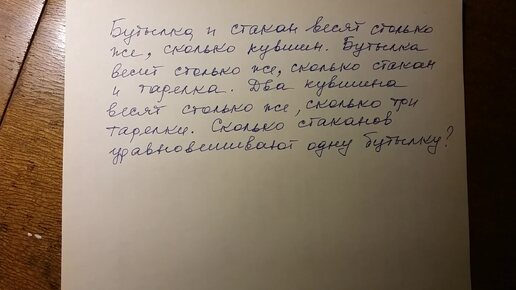 Бутылка и стакан весят столько
же, сколько кувшин. Бутылка
весит столько же, сколько стакан
и тарелка. Два кувшина
весят столько же, сколько три
тарелки. Сколько стаканов
уравновешивают одну бутылку?